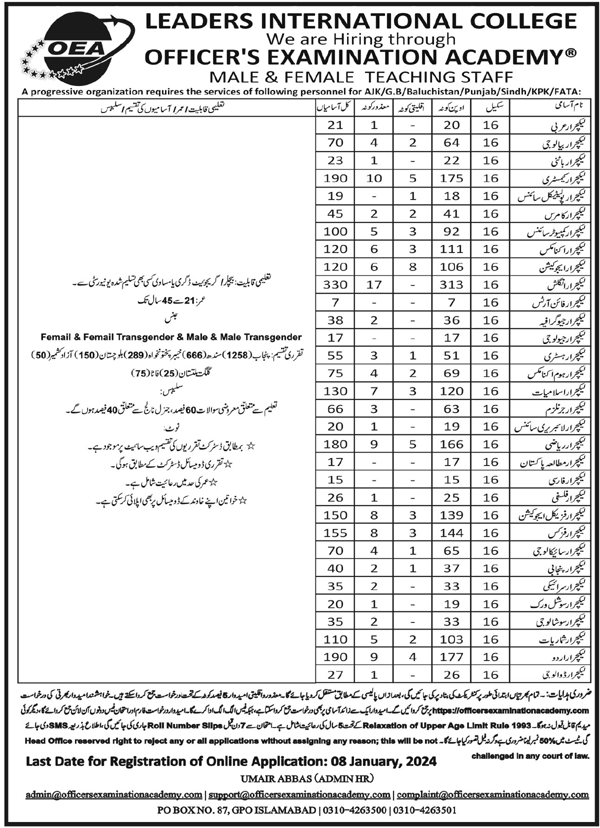 OEA
LEADERS INTERNATIONAL COLLEGE
We are Hiring through
OFFICER'S EXAMINATION ACADEMY®
MALE & FEMALE TEACHING STAFF
A progressive organization requires the services of following personnel for AJK/G.B/Baluchistan/Punjab/Sindh/KPK/FATA:
نام آسامی سکیل اوپن کوٹہ اقلیتی کوٹہ معذور کوٹہ کل آسامیاں تعلیمی قابلیت / عمر / آسامیوں کی تقسیم / سلیبس
لیکچرار عربی 16 20 - 1 21
لیکچرار بیالوجی 16 64 2 4 70
لیکچرار باٹنی 16 22 - 1 23
لیکچرار کیمسٹری 16 175 5 10 190
لیکچرار پولیٹیکل سائنس 16 18 1 - 19
لیکچرار کامرس 16 41 2 2 45
لیکچرار کمپیوٹر سائنس 16 92 3 5 100
لیکچرار اکنامکس 16 111 3 6 120
لیکچرار ایجوکیشن 16 106 8 6 120
لیکچرار انگلش 16 313 - 17 330
لیکچرار فائن آرٹس 16 7 - - 7
لیکچرار جیوگرافیہ 16 36 - 2 38
لیکچرار جیولوجی 16 17 - - 17
لیکچرار ہسٹری 16 51 1 3 55
لیکچرار ہوم اکنامکس 16 69 2 4 75
لیکچرار اسلامیات 16 120 3 7 130
لیکچرار جرنلزم 16 63 - 3 66
لیکچرار لائبریری سائنس 16 19 - 1 20
لیکچرار ریاضی 16 166 5 9 180
لیکچرار مطالعہ پاکستان 16 17 - - 17
لیکچرار فارسی 16 15 - - 15
لیکچرار فلسفی 16 25 - 1 26
لیکچرار فزیکل ایجوکیشن 16 139 3 8 150
لیکچرار فزکس 16 144 3 8 155
لیکچرار سائیکالوجی 16 65 1 4 70
لیکچرار پنجابی 16 37 1 2 40
لیکچرار سرائیکی 16 33 - 2 35
لیکچرار سوشل ورک 16 19 - 1 20
لیکچرار سوشالوجی 16 33 - 2 35
لیکچرار شماریات 16 103 2 5 110
لیکچرار اردو 16 177 4 9 190
لیکچرار ذوالوجی 16 26 - 1 27
تعلیمی قابلیت: بیچلر / گریجویٹ ڈگری یا مساوی کسی بھی تسلیم شدہ یونیورسٹی سے۔
عمر: 21 سے 45 سال تک
جنس
Femail & Femail Transgender & Male & Male Transgender
تقرری تقسیم: پنجاب (1258) سندھ (666) خیبر پختونخواہ (289) بلوچستان (150) آزاد کشمیر (50)
گلگت بلتستان (25) فاٹا (75)
سلیبس:
تعلیم سے متعلق معروضی سوالات 60 فیصد، جنرل نالج سے متعلق 40 فیصد ہوں گے۔
نوٹ:
☆ بمطابق ڈسٹرکٹ تقرریوں کی تقسیم ویب سائیٹ پر موجود ہے۔
☆ تقرری ڈومیسائل ڈسٹرکٹ کے مطابق ہوگی۔
☆ عمر کی حد میں رعایت شامل ہے۔
☆ خواتین اپنے خاوند کے ڈومیسائل پر بھی اپلائی کر سکتی ہے۔
ضروری ہدایات:۔ تمام بھرتیاں ابتدائی طور پر کنٹریکٹ کی بناء پر کی جائیں گی، بعد ازاں پالیسی کے مطابق مستقل کر دیا جائے گا۔ معذور و اقلیتی امیدوار 5 فیصد کوٹہ کے تحت درخواست جمع کروا سکتے ہیں۔ خواہشمند امیدوار بھرتی کی درخواست
https://officersexaminationacademy.com پر جمع کروائیں گے۔
Relaxation of Upper Age Limit Rule 1993 کے تحت 5 سال کی رعایت شامل ہے۔ امتحان سے 7 دن قبل Roll Number Slips جاری کی جائیں گی، اطلاع بذریعہ SMS دی جائے
گی۔ ٹیسٹ میں %50 نمبر لینا ضروری ہے وگرنہ فیل تصور کیا جائے گا۔ Head Office reserved right to reject any or all applications without assigning any reason; this will be not
challenged in any court of law.
Last Date for Registration of Online Application: 08 January, 2024
UMAIR ABBAS (ADMIN HR)
admin@officersexaminationacademy.com | support@officersexaminationacademy.com | complaint@officersexaminationacademy.com
PO BOX NO. 87, GPO ISLAMABAD | 0310-4263500 | 0310-4263501